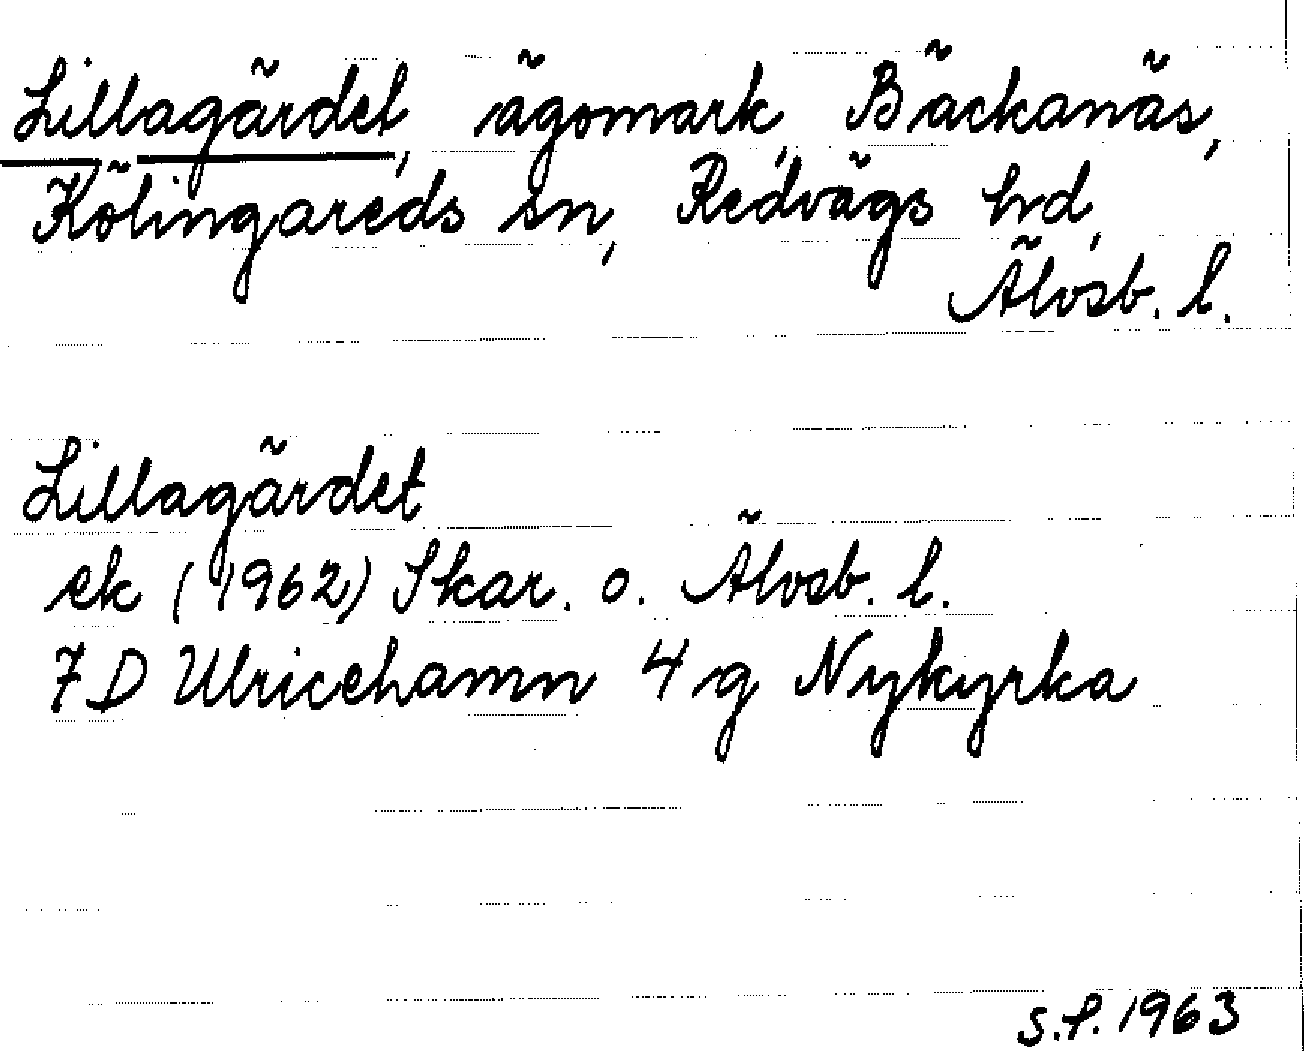 Lillagärdet, ägomark, Bäckanäs,
Kölingareds sn, Redvägs hd,
Älvsb. l.
Lillagärdet
ek (1962) Skar. o. Älvsb. l.
7D Ulricehamn 4 g Nykyrka
S.P. 1963